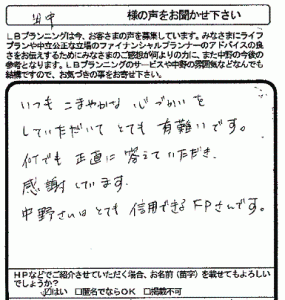 田中 様の声をお聞かせ下さい
LBプランニングは今、お客さまの声を募集しています。みなさまにライフ
プランや中立公正な立場のファイナンシャルプランナーのアドバイスの良
さをお伝えするためにみなさまのご感想が何よりの力に、また中野の今後の
参考となります。LBプランニングのサービスや中野の雰囲気などなんでも
結構ですので、お気づきの事をお寄せ下さい。
いつも こまやかな 心づかいを
していただいて とても 有難いです。
何でも 正直に 答えていただき、
感謝しています。
中野さんはとても 信用できるFPさんです。
HPなどでご紹介させていただく場合、お名前(苗字)を載せてもよろしい
でしょうか? ☑はい □匿名でならOK □掲載不可